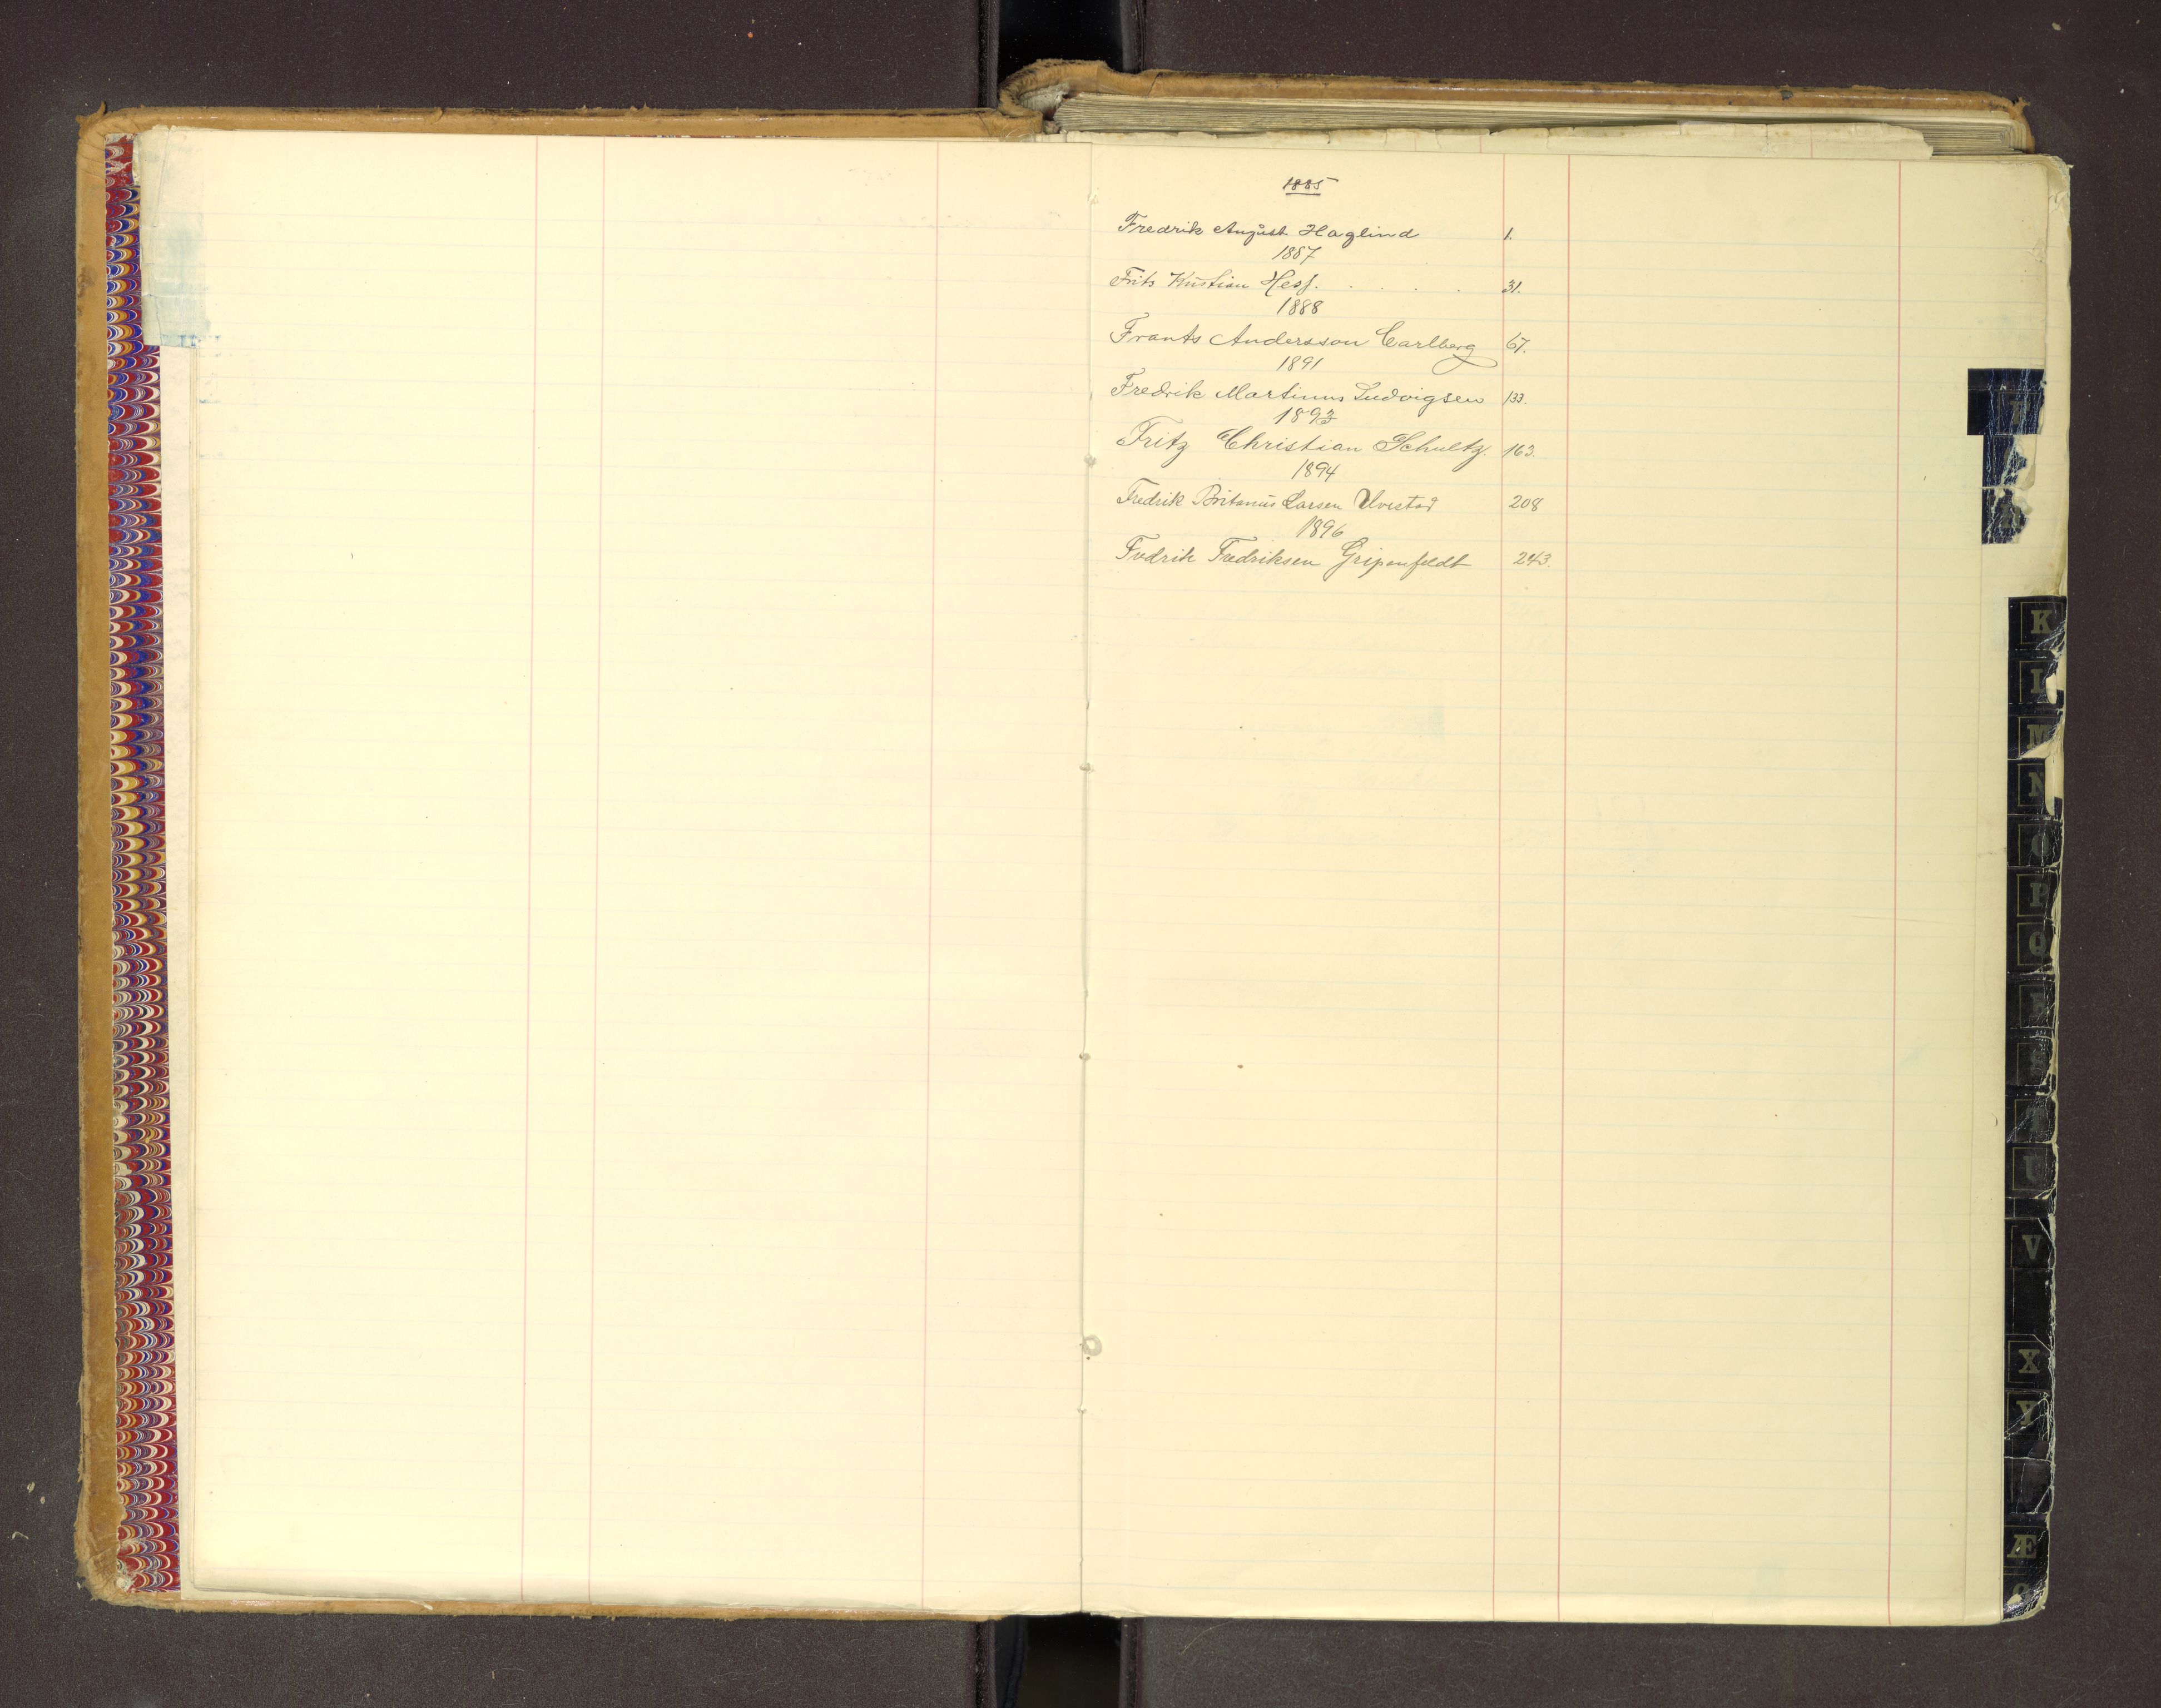 1885
Fredrik August Haglind 1.
1887
Frits Kristian Hess. . . . . . 31.
1888
Frants Andersson Carlberg 67.
1891
Fredrik Martinus Ludvigsen 133.
1893
Fritz Christian Schultz. 163.
1894
Fredrik Larsen Ulvestad 208
1896
Fredrik Fredriksen Gripenfeldt 243.
K
L
M
N
O
P
Q
R
S
T
U
V
X
Y
Æ